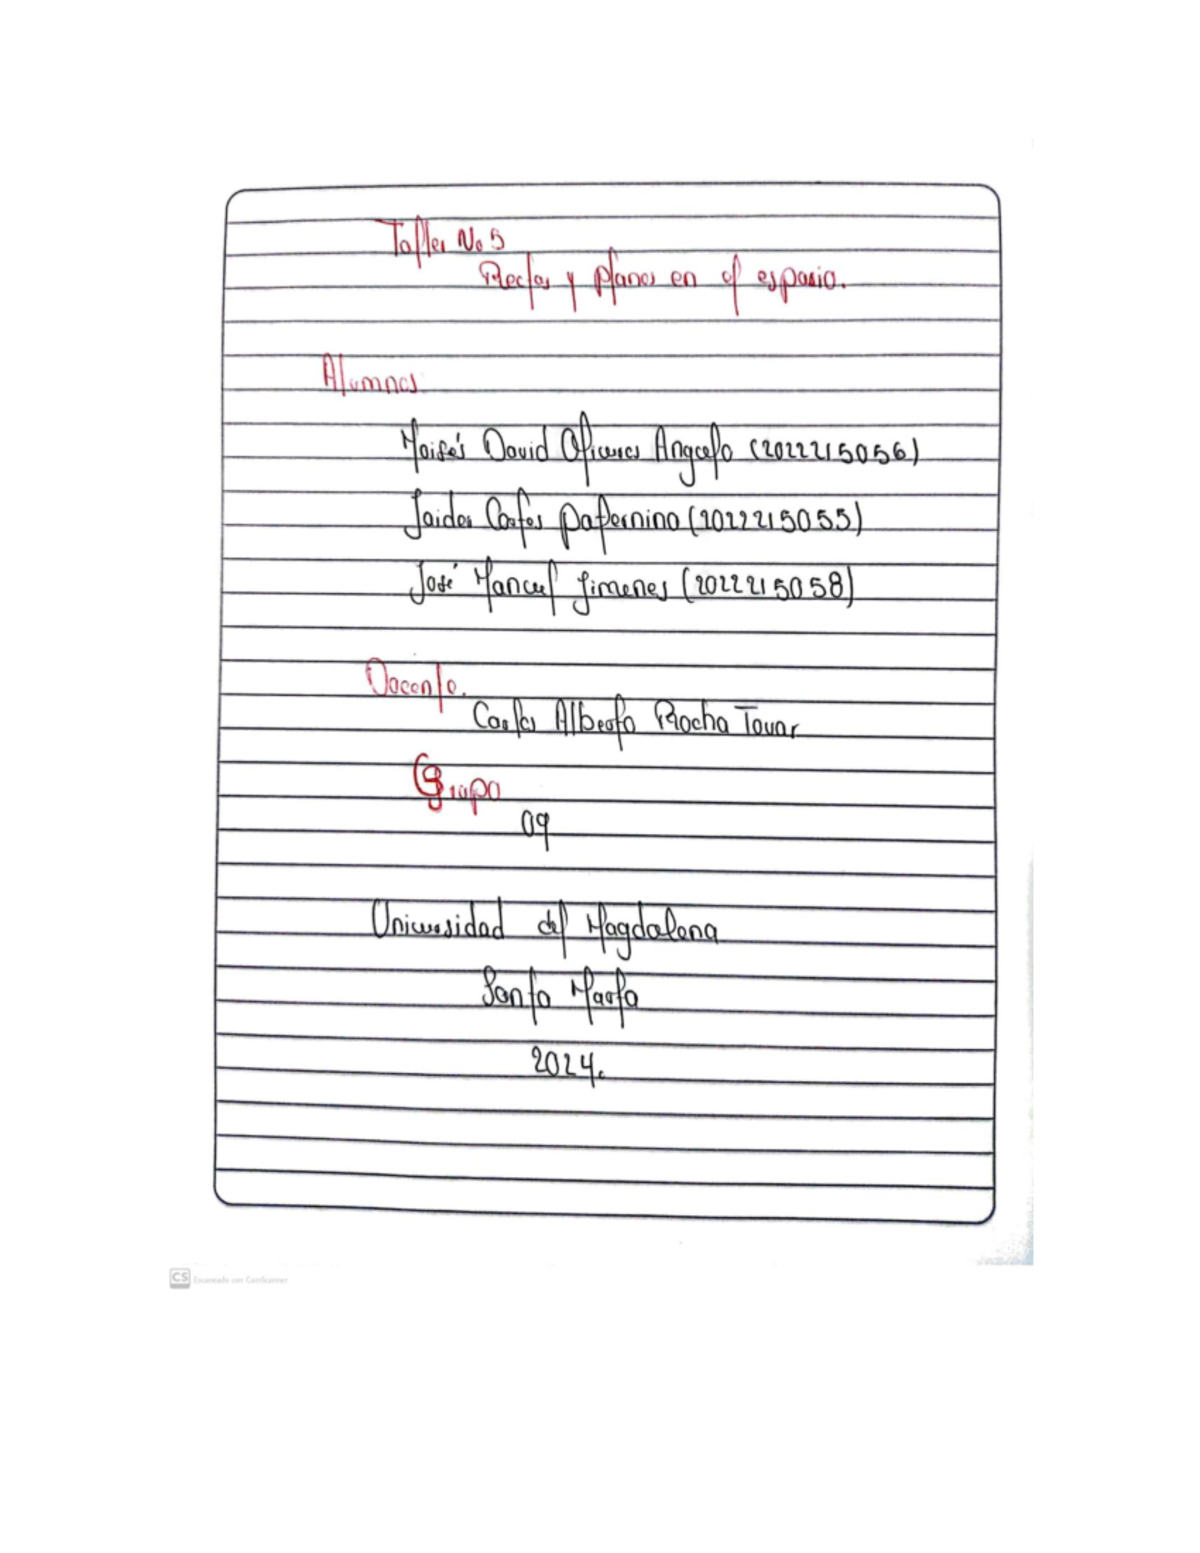 Taller No 5
Rectas y planos en el espasio.
Alumnos.
Moisés David Olivares Angulo (2022215056)
Jaider Carlos Palternina (2022215055)
José Manuel Jimenes (2022215058)
Docente.
Carlos Alberto Rocha Tovar
Grupo
09
Universidad del Magdalena
Santa Marta
2024.
CS Escaneado con CamScanner